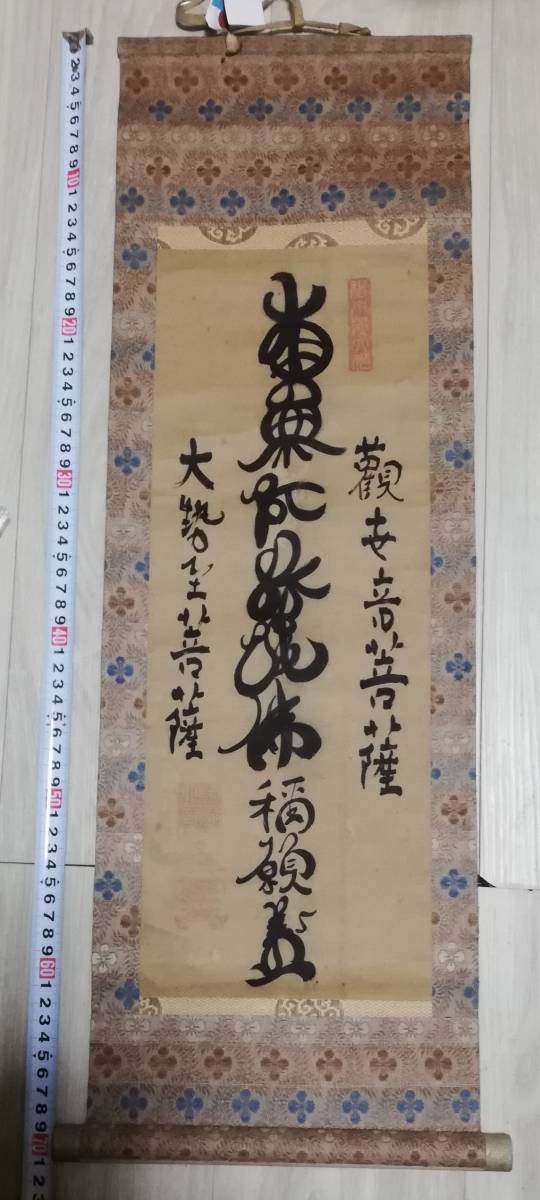 觀世音菩薩
南無阿弥陀佛
大勢至菩薩
2 3 4 5 6 7 8 9 10 1 2 3 4 5 6 7 8 9 20 1 2 3 4 5 6 7 8 9 30 1 2 3 4 5 6 7 8 9 40 1 2 3 4 5 6 7 8 9 50 1 2 3 4 5 6 7 8 9 60 1 2 3 4 5 6 7 8 9 70 1